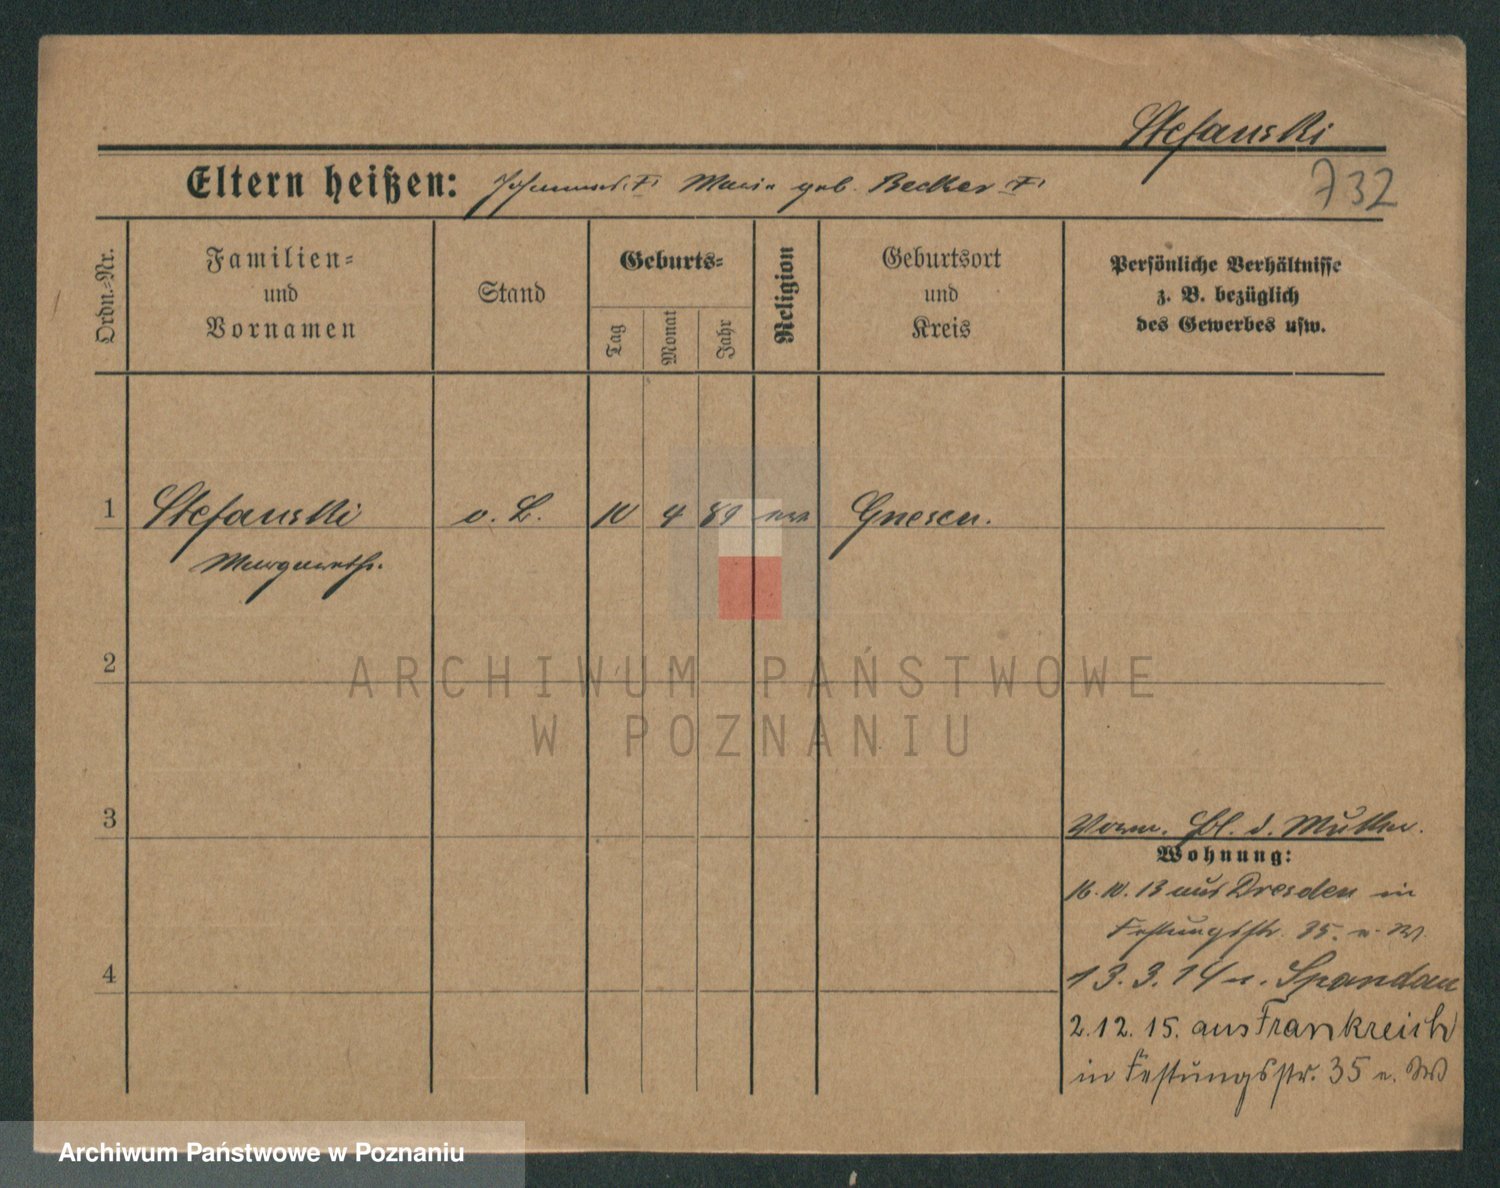 Stefanski
Eltern heißen: Johannes Maria geb. Becker
732
Ordn.-Nr.
Familien-
und
Vornamen
Stand
Geburts-
Tag
Monat
Jahr
Religion
Geburtsort
und
Kreis
Persönliche Verhältnisse
z. B. bezüglich
des Gewerbes usw.
1 Stefanski o. B. 10 4 89 Gnesen.
Margareth.
2
3
Vorm. Bl. d. Mutter.
Wohnung:
16.10.13 aus Dresden in
Festungsstr. 35.
4
13.3.14 n. Spandau
2.12.15. aus Frankreich
in Festungsstr. 35
ARCHIWUM PAŃSTWOWE
W POZNANIU
Archiwum Państwowe w Poznaniu